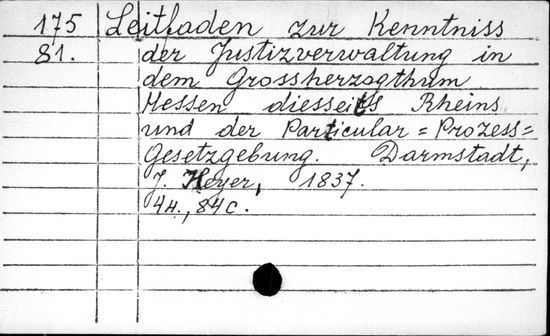 175 Leitfaden zur Kenntniss
81. der Justizverwaltung in
dem Grossherzogthum
Hessen diesseits Rheins
und der Particular=Prozess=
Gesetzgebung. Darmstadt,
J. Heyer, 1837.
4H., 84C.